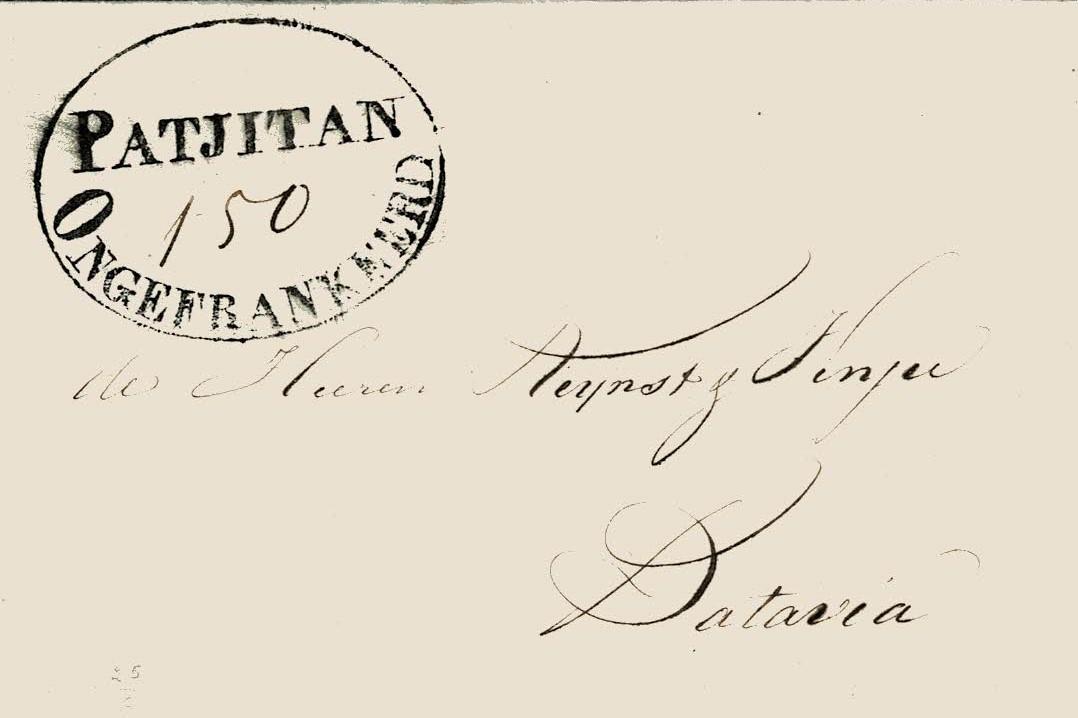 PATJITAN
150
ONGEFRANKEERD
de Heeren Reynst & Vinju
Batavia
25